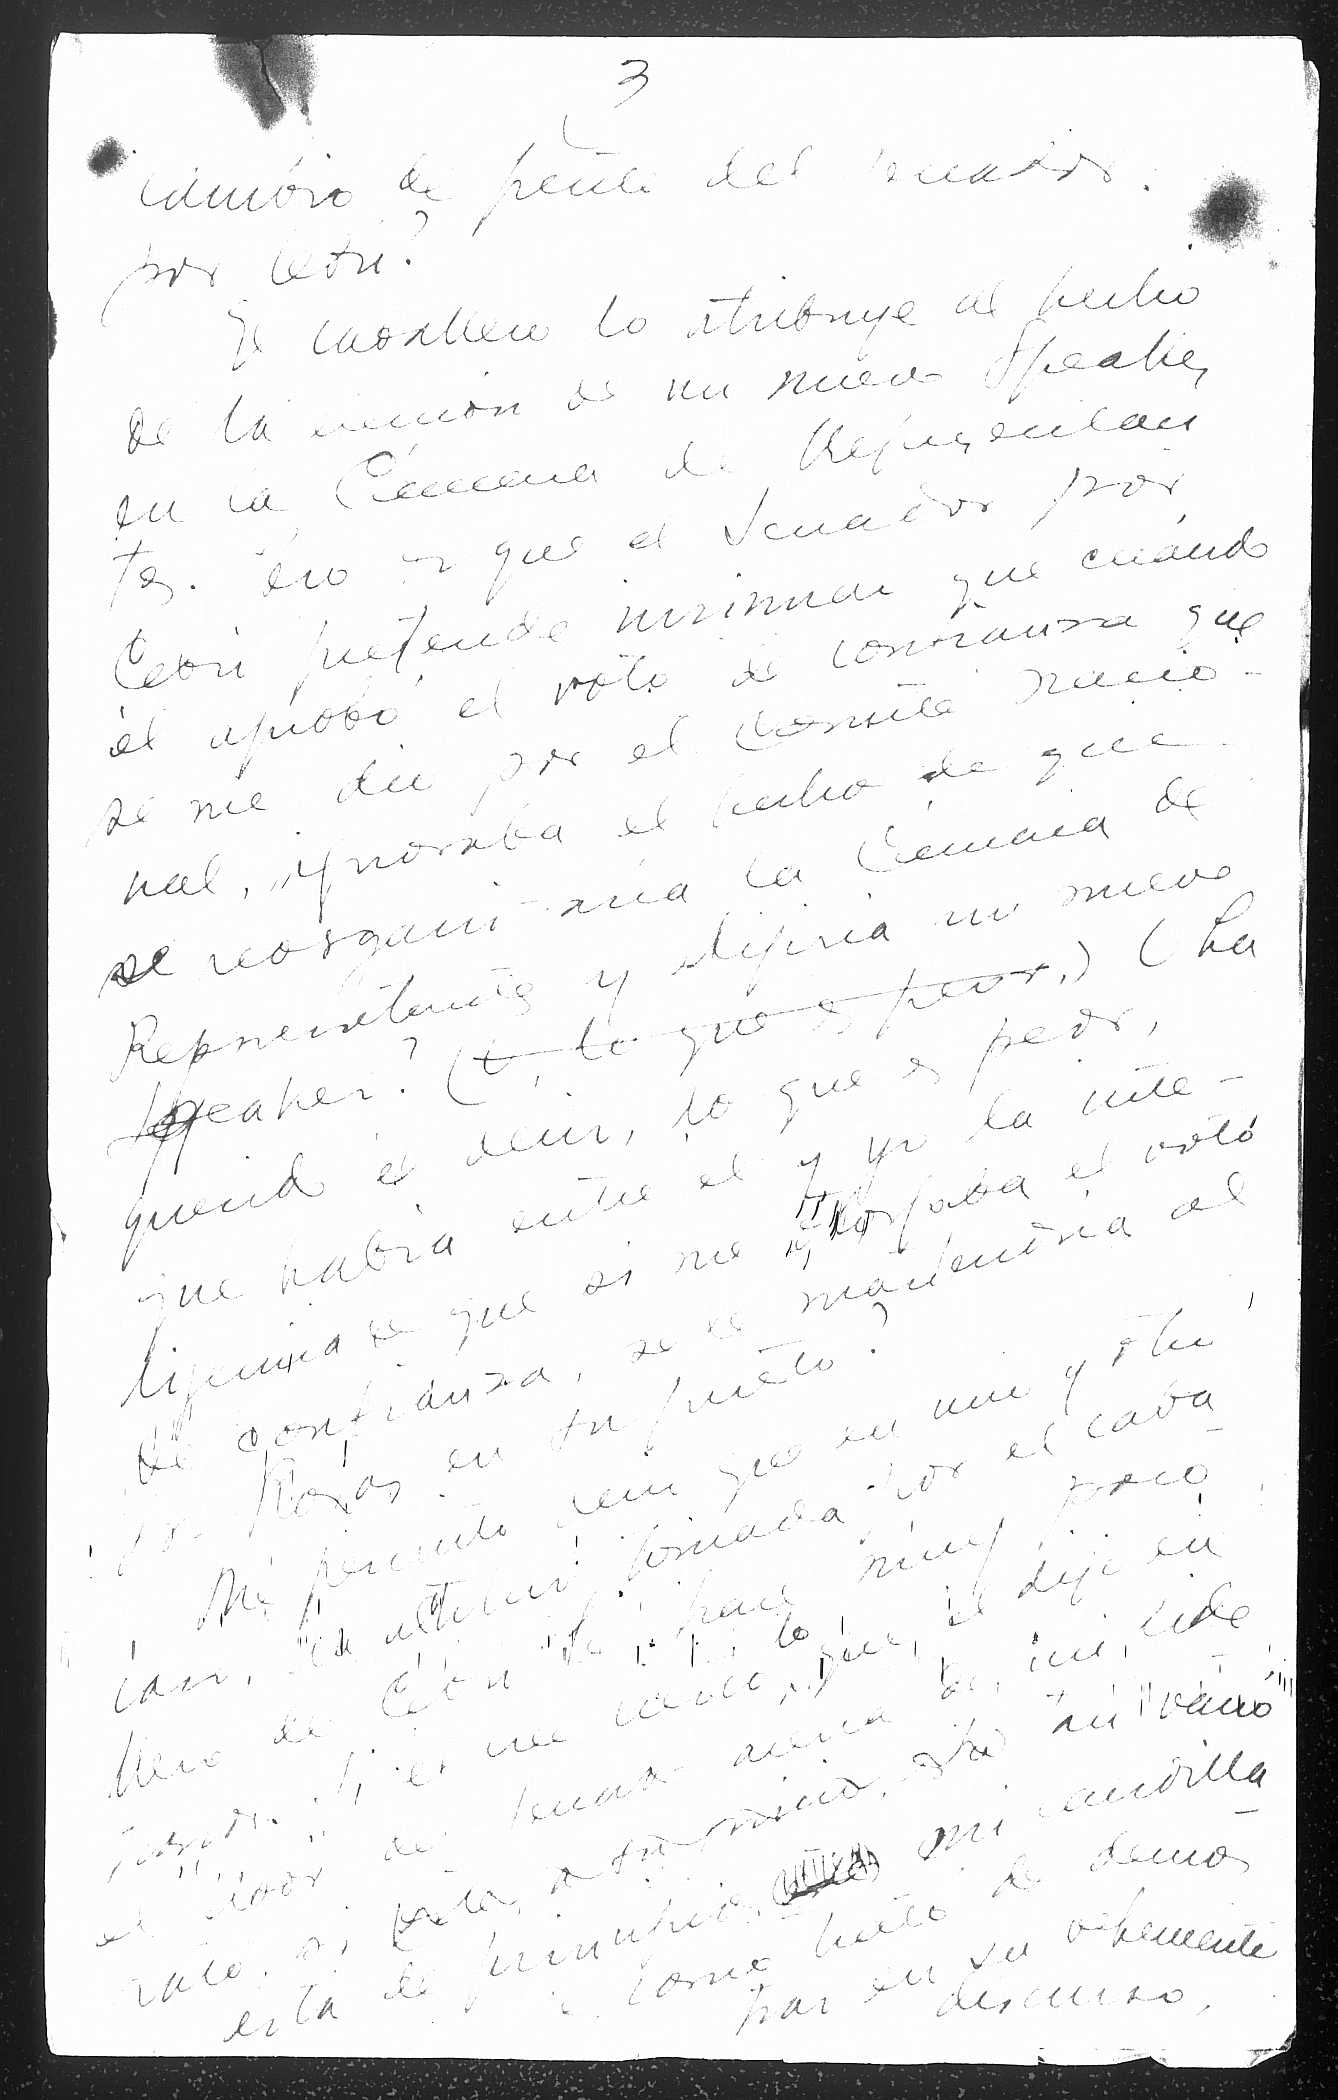 3
cambio de frente del senador
por Cebú?
El caballero lo atribuye al hecho
de la elección de un nuevo Speaker
en la Cámara de Representan
tes. Eso es que el Senador por
Cebú pretende insinuar que cuando
él aprobó el voto de confianza que
se me dio por el Comité Nacio-
nal, ignoraba el hecho de que
se reorganizaría la Cámara de
Representantes y elijiría un nuevo
Speaker? (O, lo que es peor,) (Ha
querido él decir, lo que es peor,
que había entre él y yo la inte-
ligencia de que si me otorgaba el voto
de confianza, se le mantendría al
Sr. Roxas en su puesto?
Me permito decir que en uno y otro
caso, la actitud tomada por el caba-
llero de Cebú le hace muy poco
favor. Si es
el lo que él dijo en
de mi, si de
esta de principio mi candilla
como trató de demos-
trar en su vehemente
discurso,